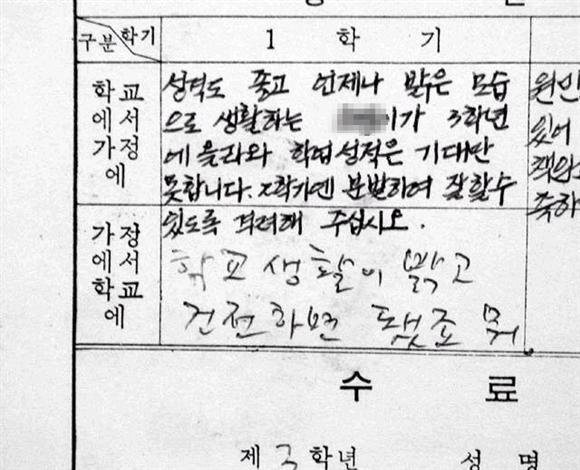 구분 학기
1 학 기
학교
에서
가정
에
성덕도 좋고 언제나 밝은 모습
으로 생활하는 이가 3학년
에 올라와 학업성적은 기대만
못합니다. 2학기엔 분발하여 잘할수
있도록 격려해 주십시오.
원인
있어
책임
축하
가정
에서
학교
에
학교 생활이 밝고
건전하면 됐죠 뭐
수 료
제 3 학년 성 명